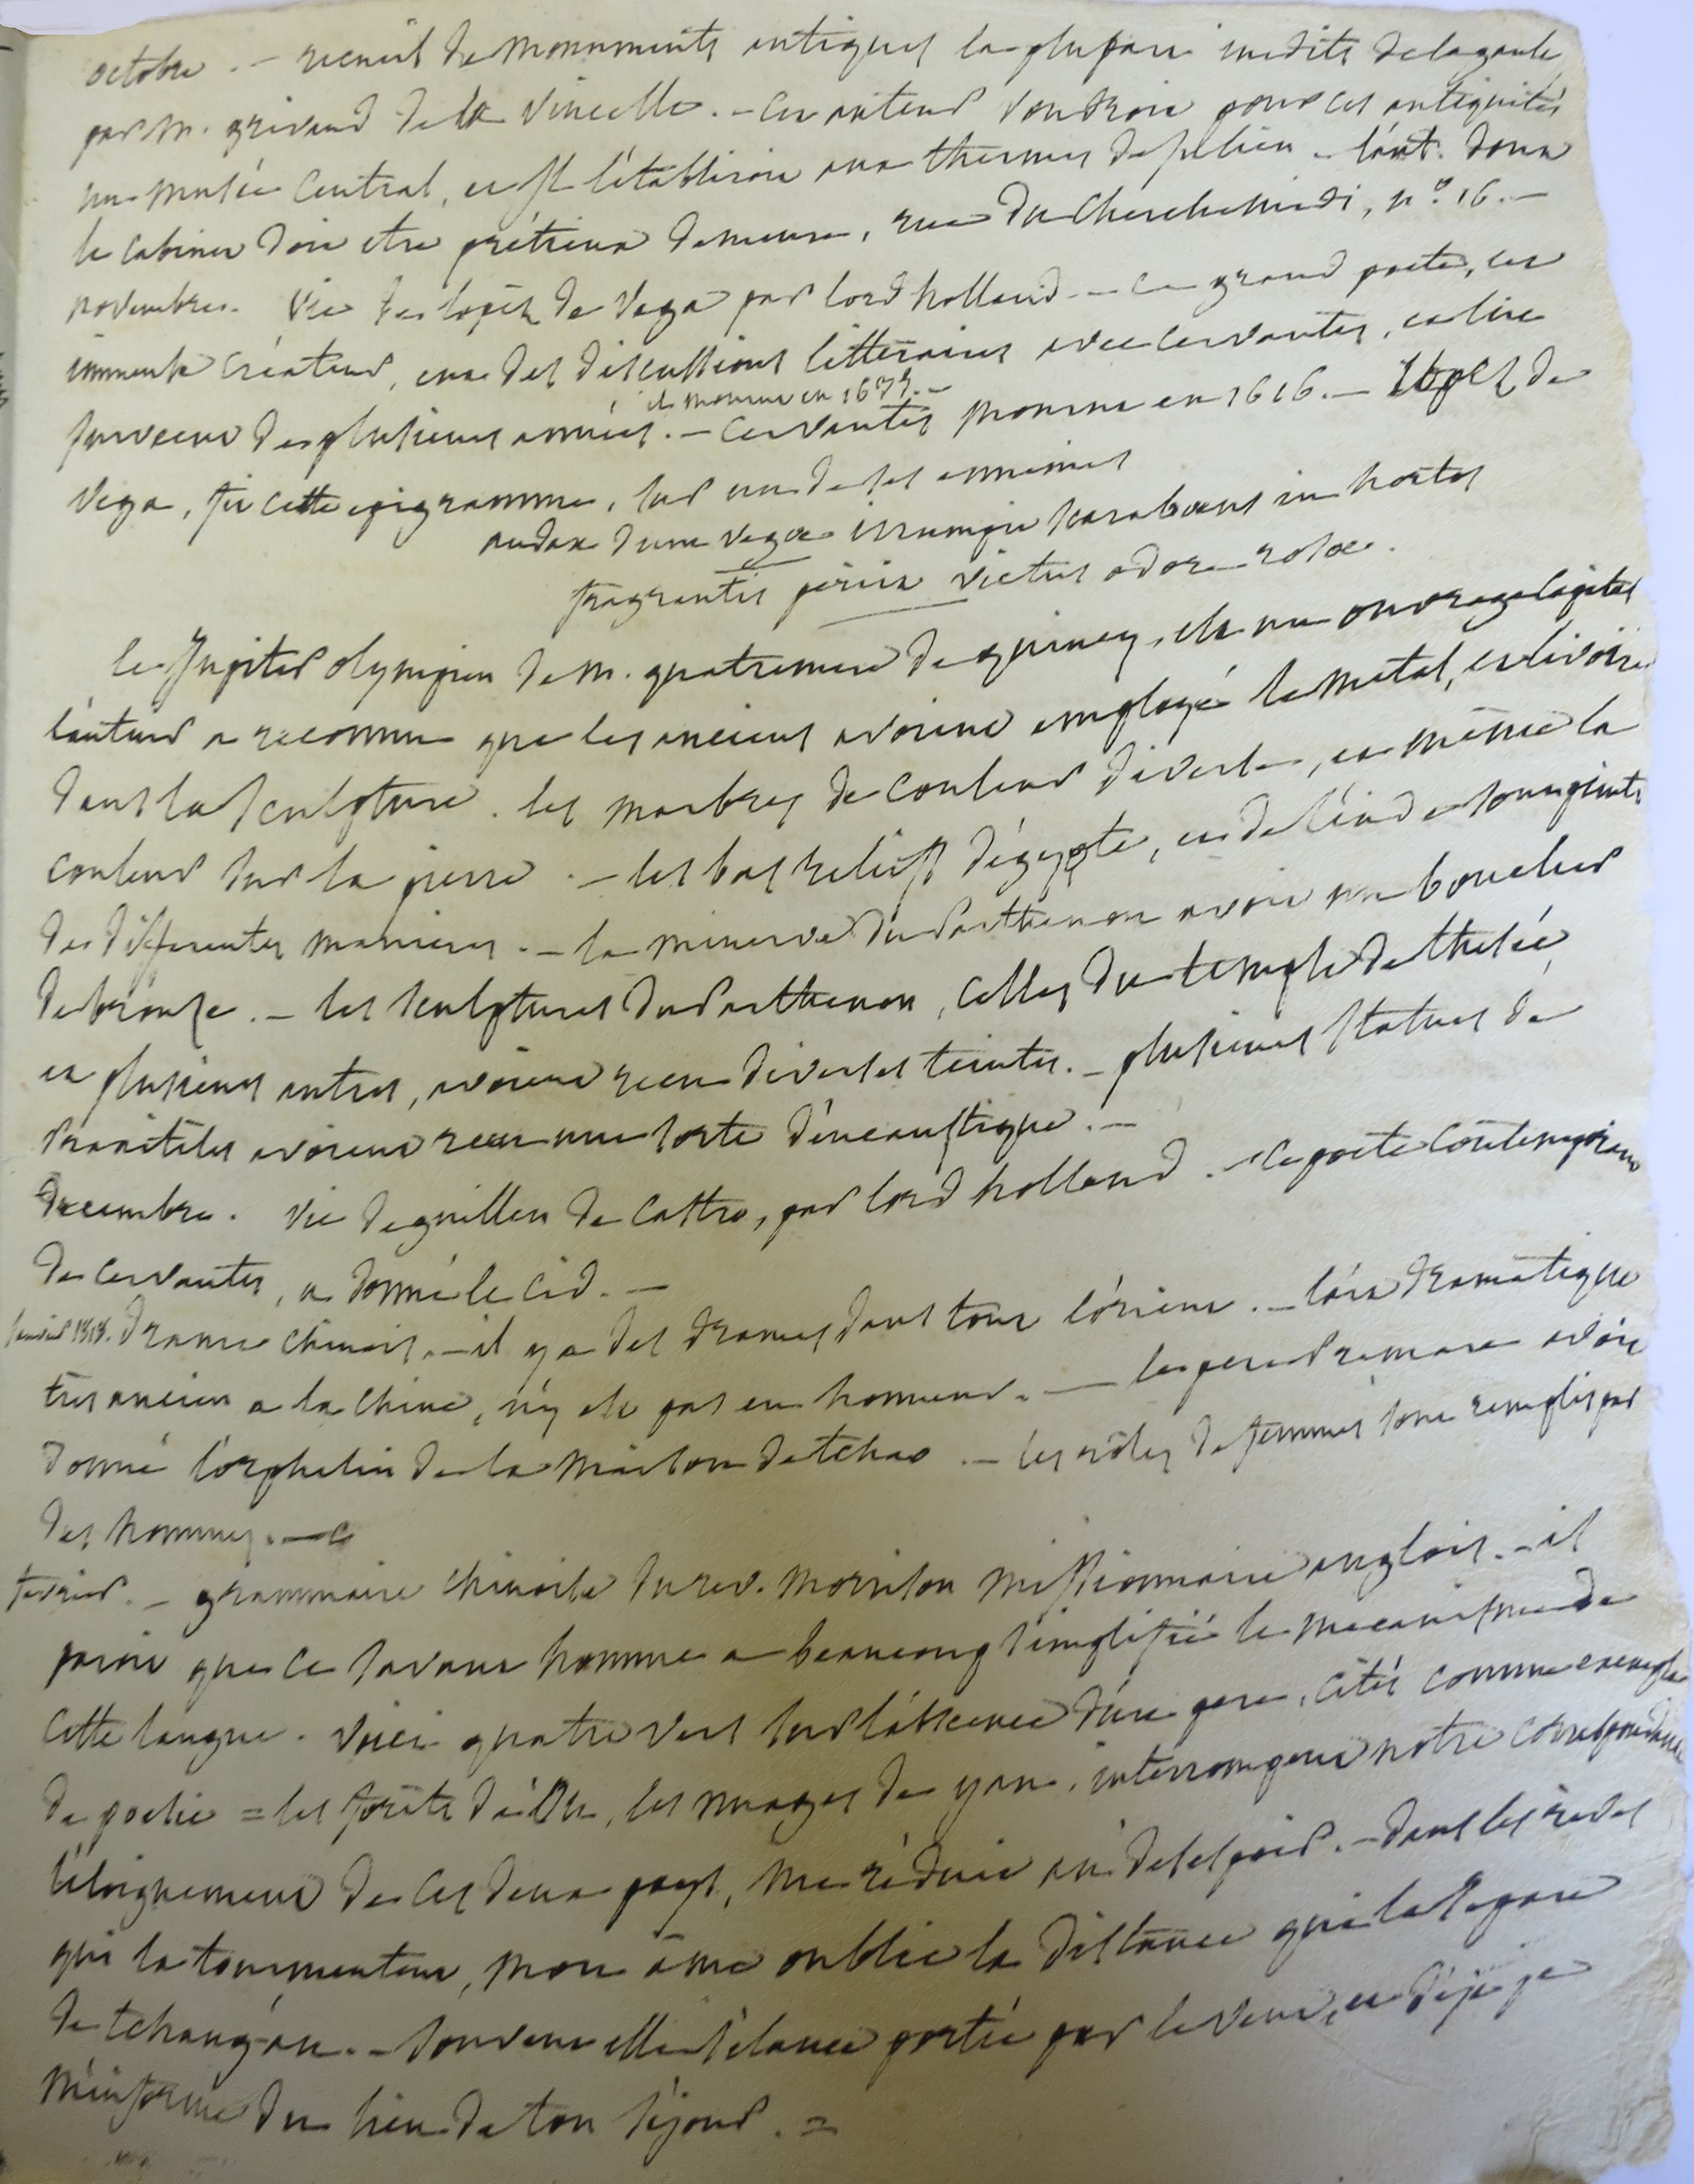 octobre. — recueil de monuments antiques la plupart inedits de la gaule
par m. grivaud de la vincelle. — cet auteur voudroit pour ces antiquités
un musée central, et il l'établiroit aux thermes de julien — l'aut. dont
le cabinet doit etre prétieux demeure, rue du Cherchemidi, n.º 16. —
novembre. vie de lopez de Vega par lord holland — ce grand poete, cet
immense créateur, eut des discussions litteraires avec cervantes, et lui
il mourut en 1635. —
survecut de plusieurs années. — cervantes mourut en 1616. — Lopez de
Vega, fit cette epigramme, sur un de ses ennemis
audax dum vegae irrumpit scarabaeus in hortos
fragrantis periit victus odore rosae.
le Jupiter olympien de m. quatremere de quincy, est un ouvrage capital
l'auteur a reconnu que les anciens avoient employé le métal, et l'ivoire
dans la sculpture. les marbres de couleur diverse, et même la
couleur sur la pierre. — les bas reliefs d'égypte, et de l'inde sont peints
de differentes manieres. — la minerve du Parthenon avoit un bouclier
de bronze. — les sculptures du Parthenon, celles du temple de thesée,
et plusieurs autres, avoient recu diverses teintes. — plusieurs statues de
Praxiteles avoient recu une sorte d'encaustique. —
Decembre. vie de guillen de Castro, par lord holland. — ce poete contemporain
de cervantes, a donné le Cid. —
Janvier 1818. drame chinois. — il y a des drames dans tout l'orient. — l'art dramatique
tres ancien a la Chine, n'y est pas en honneur. — le pere Premare avoit
donné l'orphelin de la maison de tchao. — les rôles de femmes sont remplis par
des hommes. —
fevrier. — grammaire chinoise du rev. morrison missionnaire anglois. — il
paroit que ce savant homme a beaucoup simplifié le mecanisme de
cette langue. voici quatre vers sur l'absence d'un pere, cités comme exemple
de poesie = les forêts de , les nuages de yan, interrompent notre correspondance
l'éloignement de ces deux pays, me réduit au desespoir. — dans les rêves
qui la tourmentent, mon âme oublie la distance qui la separe
de tchangan. — souvent elle s'élance portée par le vent, et déjà je
m'informe du lieu de ton séjour. =